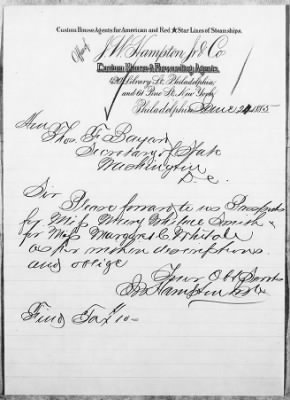 Custom House Agents for American and Red Star Lines of Steamships.
Office of
J. W. Hampton Jr & Co
Custom House & Forwarding Agents,
420 Library St. Philadelphia
and 61 Pine St. New York,
Philadelphia, June 24 1885
Hon
Thos. F. Bayard
Secretary of State
Washington
D. C.
Sir
Please forward to us Passports
for Miss Whitall Smith &
for Miss Margaret C Whitall
as per within descriptions
and oblige
Your Obt Servts
J W Hampton Jr & Co
Find